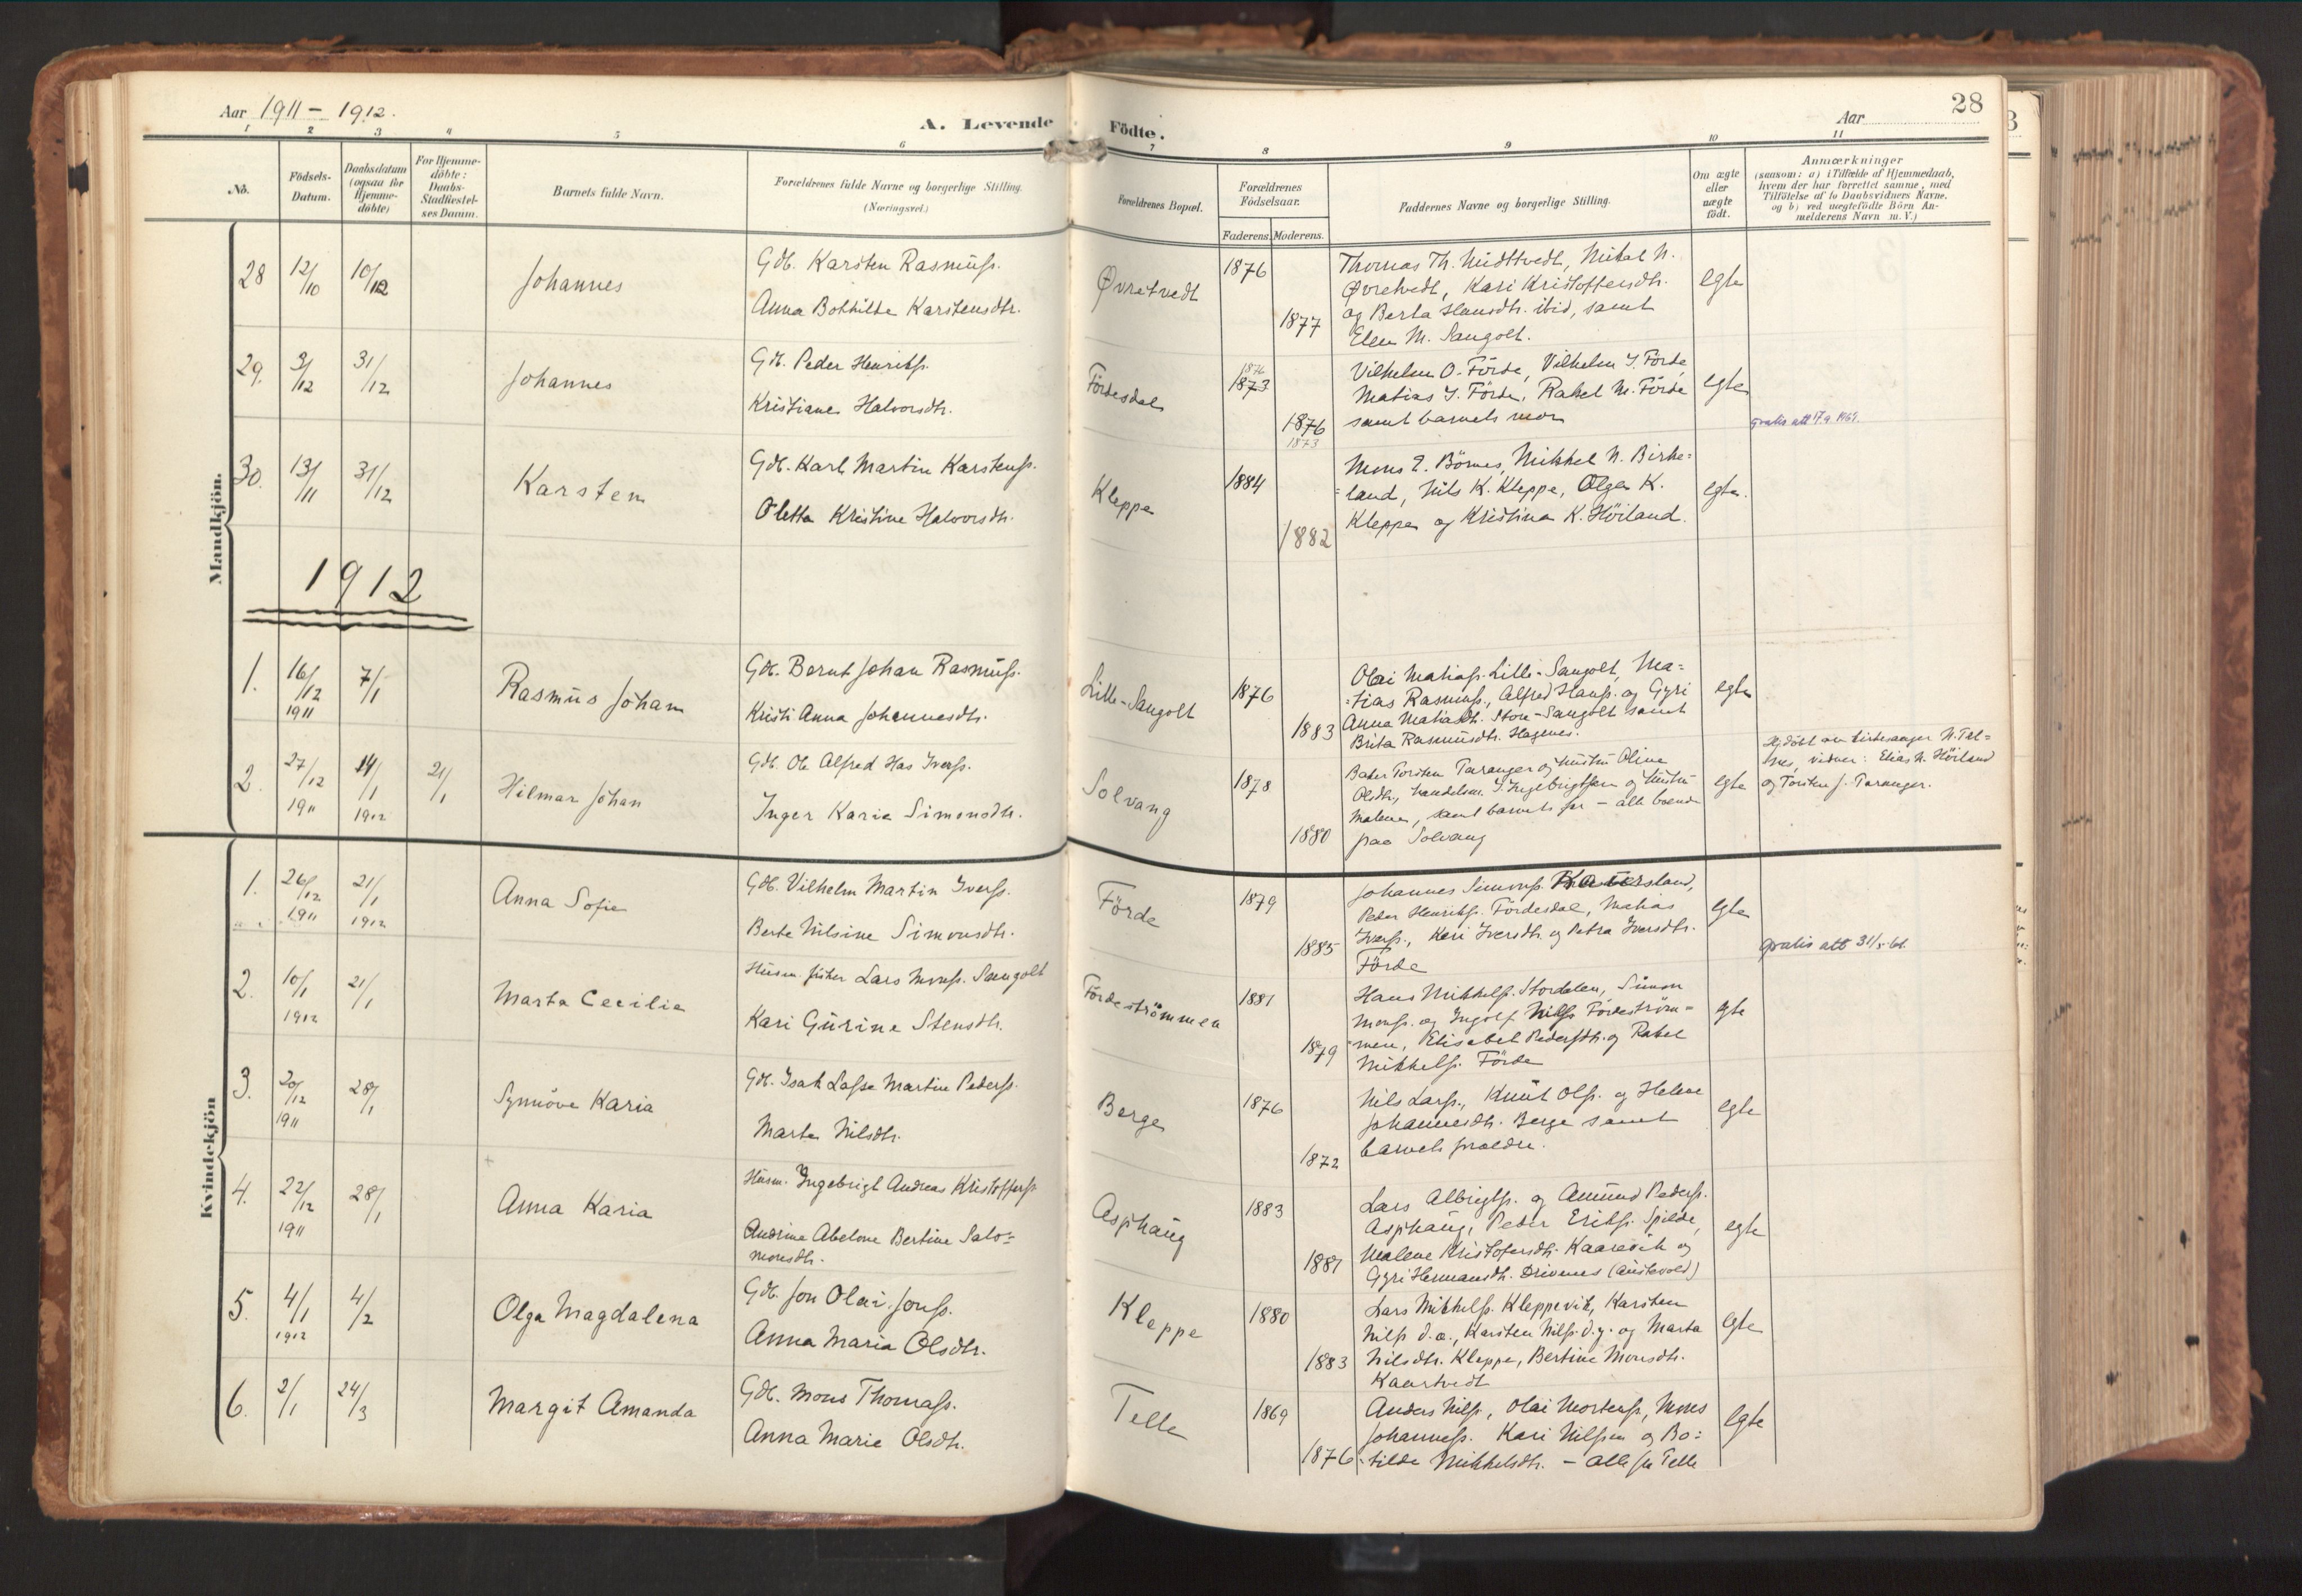 Aar 1911 – 1912.
A. Levende Födte.
Aar
28
1 2 3 4 5 6 7 8 9 10 11
No.
Födsels-Datum.
Daabsdatum (ogsaa for Hjemme-döbte)
For Hjemme-döbte: Daabs-Stadfæstel-ses Datum.
Barnets fulde Navn.
Forældrenes fulde Navne og borgerlige Stilling.
(Næringsvei.)
Forældrenes Bopæl.
Forældrenes Födselsaar.
Faderens. Moderens.
Faddernes Navne og borgerlige Stilling.
Om ægte eller uægte födt.
Anmærkninger
(saasom: a) i Tilfælde af Hjemmedaab,
hvem der har forrettet samme, med
Tilföielse af to Daabsvidners Navne,
og b) ved uægtefödte Börn An-
melderens Navn m. V.)
Mandkjön.
28 12/10 10/12 Johannes
Gdb. Karsten Rasmuss.
Anna Bothilde Karstensdtr.
Øvretvedt 1876 1877
Thomas Th. Midttvedt, Mikal N.
Øvretvedt, Kari Kristoffersdtr.
og Berta Hansdtr. ibid, samt
Elen M. Sangolt.
egte
29. 3/12 31/12 Johannes
Gdb. Peder Henriks.
Kristiane Halvorsdtr.
Fördesdal 1876 1873 1876 1873
Vilhelm O. Förde, Vilhelm J. Förde
Matias J. Förde, Rakel M. Förde
samt barnets mor
egte
gratis att 17/9 1964.
30. 13/11 31/12 Karsten
Gdb. Karl Martin Karstens.
Oletta Kristine Halvorsdtr.
Kleppe 1884 1882
Mons E. Börnes, Mikkel N. Birke=
=land, Nils K. Kleppe, Olga K.
Kleppe og Kristina K. Höiland.
egte.
1912
1. 16/12 1911 7/1 Rasmus Johan
Gdb. Bernt Johan Rasmuss.
Kristi Anna Johannesdtr.
Lille-Sangolt 1876 1883
Olai Matias. Lille-Sangolt, Ma=
=tias Rasmuss., Alfred Hanss. og Gyri
Anna Matiasdtr. Store-Sangolt samt
Brita Rasmusdtr. Hagenes.
egte
2. 27/12 1911 14/1 1912 21/1 Hilmar Johan
Gdb. Ole Alfred Has Ivers.
Inger Karie Simonsdtr.
Solvang 1878 1880
Baker Torsten Taranger og hustru Oline
Olsdtr, handelsm. J. Ingebrigtsen og hustru
Malene, samt barnets far – alle boende
paa Solvang
egte
Hjdöbt av kirkesanger N. Tel=
nes, vidner: Elias N. Höiland
og Torsten J. Taranger.
Kvindekjön
1. 26/12 1911 21/1 1912 Anna Sofie
Gdb. Vilhelm Martin Ivers.
Berte Nilsine Simonsdtr.
Förde 1879 1885
Johannes Simons.
Peder Henriks. Fördesdal, Matias
Ivers., Kari Iversdtr. og Petra Iversdtr.
Förde
egte
gratis att
2. 10/1 1912 21/1 Marta Cecilie
Husm. fisker Lars Monss. Sangolt
Kari Gurine Stensdtr.
Fördeströmmen 1881 1879
Hans Mikkels. Stordalen, Simon
Monss. og Ingolf Nilss Fördeström=
=men, Elisabet Pedersdtr. og Rakel
Mikkels. Förde
egte
3. 20/12 1911 28/1 Synnöve Karia
Gdb. Isak Lasse Martin Peders.
Marta Nilsdtr.
Berge 1876 1872
Nils Larss., Knut Ols. og Helene
Johannesdtr. Berge samt
barnets foreldre.
egte
4. 22/12 1911 28/1 Anna Karia
Husm. Ingebrigt Andreas Kristoffers
Andrine Abelone Bertine Salo=
monsdtr.
Asphaug 1883 1881
Lars Albrigts. og Amund Peders.
Asphaug, Peder Eriks. Spilde,
Malene Kristofersdtr. Kaarevik og
Gyri Hermansdtr. Drivenes (Austevold)
egte
5. 4/1 1912 4/2 Olga Magdalena
Gdb. Jon Olai Jons.
Anna Maria Olsdtr.
Kleppe 1880 1883
Lars Mikkels. Kleppevik, Karsten
Nils d.æ., Karsten Nils. d.y. og Marta
Nilsdtr. Kleppe, Bertine Monsdtr.
Kaartvedt
egte
6. 2/1 24/3 Margit Amanda
Gdb. Mons Thomass.
Anna Marie Olsdtr.
Telle 1869 1876
Anders Nilss, Olai Mortens, Mons
Johanness. Kari Nilssen og Bo=
=tilde Mikkelsdtr. – alle fra Telle
egte